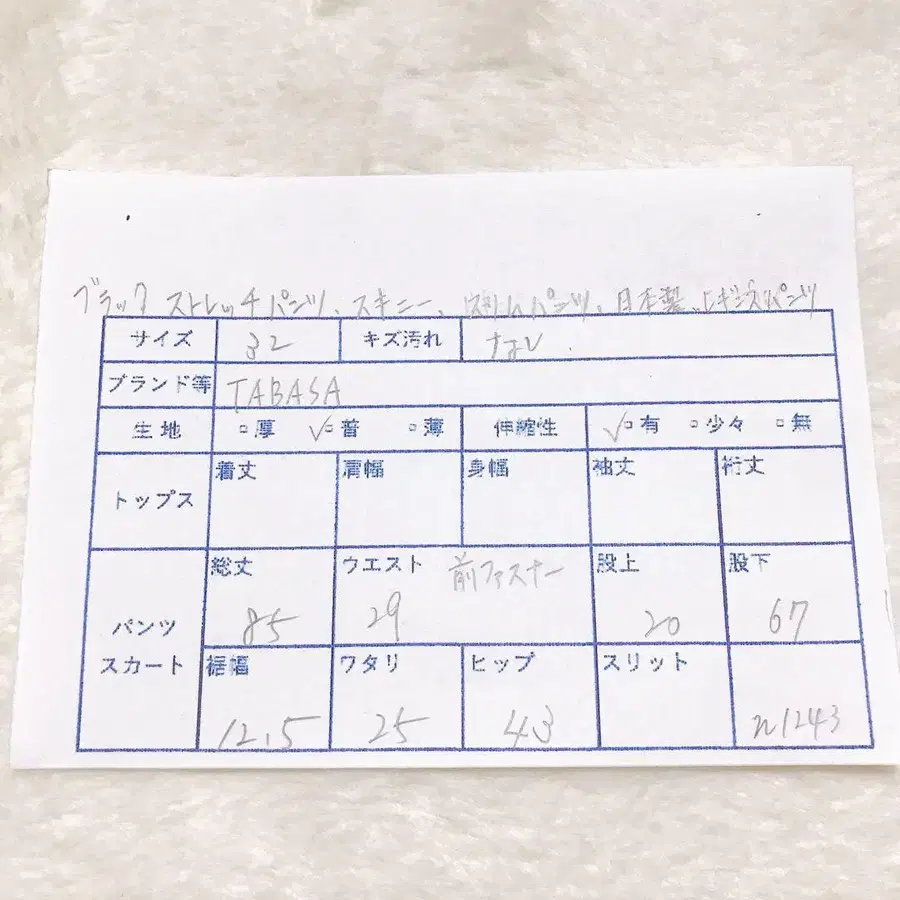 ブラック ストレッチパンツ、スキニー、スリムパンツ、日本製、レギンスパンツ
サイズ 32 キズ汚れ なし.
ブランド等 TABASA
生地 □厚 ✓□普 □薄 伸縮性 ✓□有 □少々 □無
トップス 着丈 肩幅 身幅 袖丈 裄丈
パンツ スカート
総丈 ウエスト 前ファスナー 股上 股下
85 29 20 67
裾幅 ワタリ ヒップ スリット
12.5 25 43 n1243